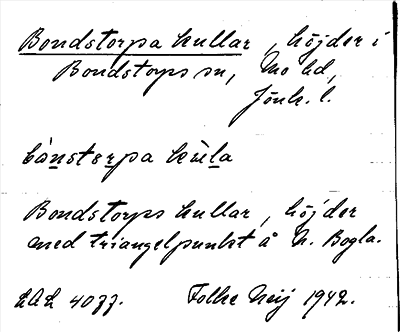 Bondstorpa kullar, höjder i
Bondstorps sn, Mo hd,
Jönk. l.
bònstɛrpa kùla
Bondstorps kullar, höjder
med triangelpunkt å N. Bogla.
Folke Neij 1942.